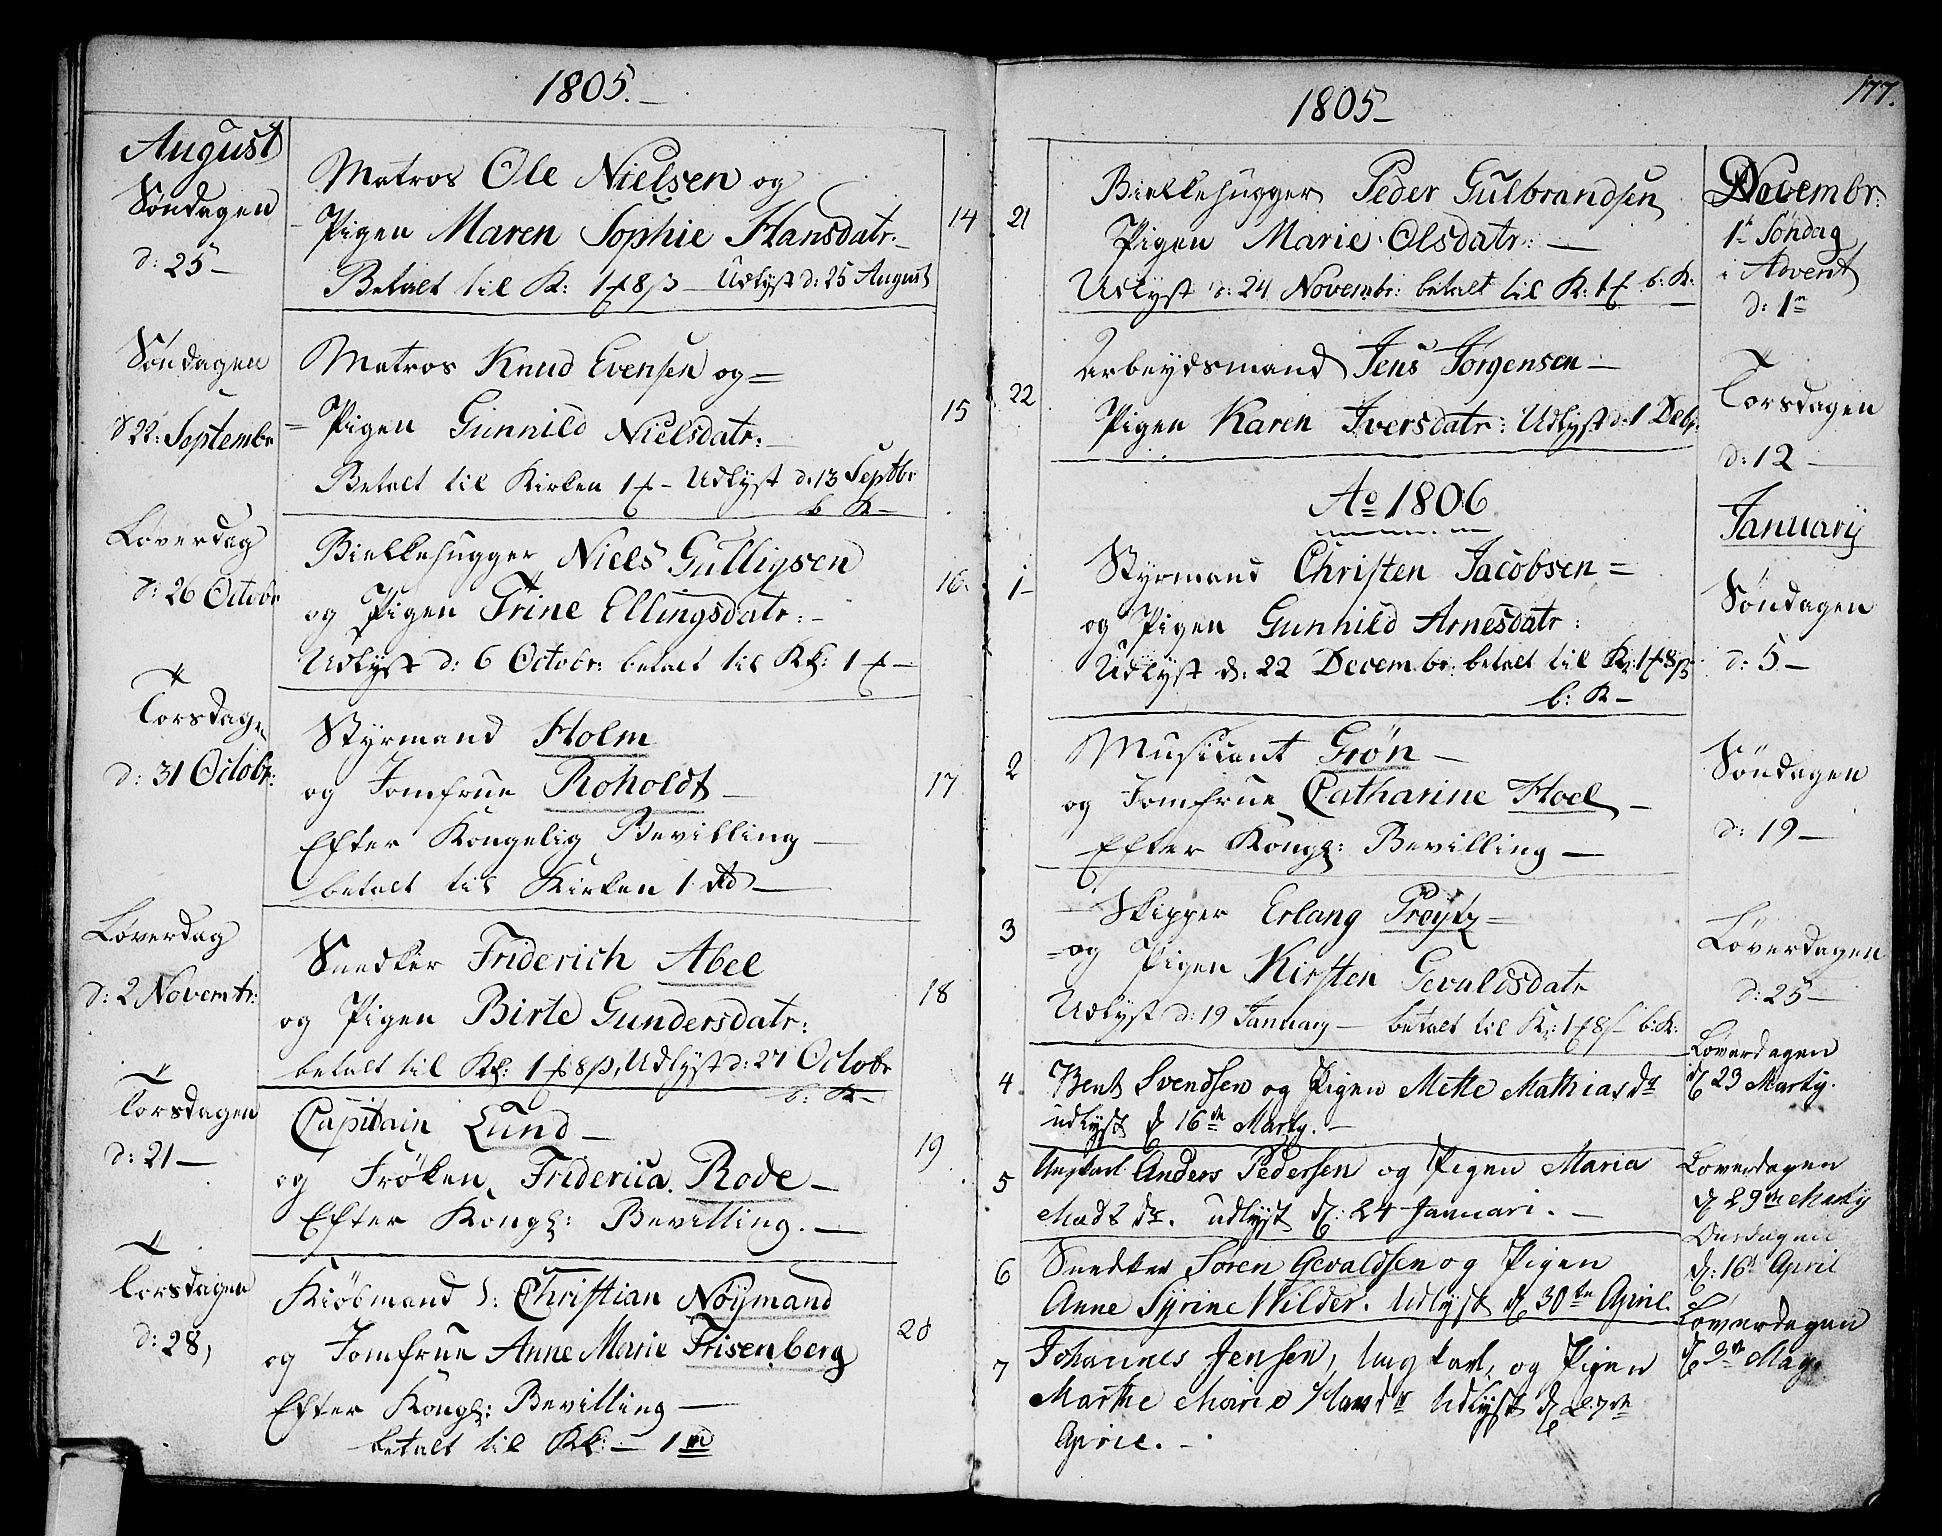 1805.
August
Søndagen
d: 25
Matros Ole Nielsen og
Pigen Maren Sophie Hansdatr.
Betalt til K: 1 f 8 ß Udlyst d: 25 August
14
Søndagen
d 22: Septembr
Matros Knud Evensen og
Pigen Gunnild Nielsdatr.
Betalt til Kirken 1 f Udlyst d. 13 Septbr
b K
15
Løverdag
d: 26 Octobr
Biellehugger Niels Gulligsen
og Pigen Trine Ellingsdatr:
Udlyst d: 6 Octobr: betalt til Kk: 1 f
16
Torsdagen
d: 31 Octobr:
Styrmand Holm
og Jomfrue Roholdt
Efter Kongelig Bevilling
betalt til Kirken 1 Rd
17
Løverdag
d: 2 Novembr:
Snedker Friderich Abel
og Pigen Birte Gundersdatr:
betalt til Kk: 1 f 8 ß, Udlyst d: 27 Octobr
b: K
18
Torsdagen
d: 21
Capitain Lund
og Frøken Friderica Rode
Efter Kongl: Bevilling.
19
Torsdagen
d: 28,
Kiøbmand S: Christian Nöymand
og Jomfrue Anne Marie Frisenberg
Efter Kongl: Bevilling
betalt til Kk: 1
20
1805
177.
21
Biellehugger Peder Gulbrandsen
Pigen Marie Olsdatr:
Udlyst d: 24 Novembr: betalt til K: 1 f b: K:
Novembr:
1te Søndag
i Advent
d: 1te
22
Arbeydsmand Jens Jørgensen
Pigen Karen Iversdatr: Udlyst d: 1 Debr.
Torsdagen
d: 12
Ao 1806
January
1
Styrmand Christen Jacobsen
og Pigen Gunhild Arnesdatr:
Udlyst d: 22 Decembr: betalt til K: 1 f 8 ß
b: K
Søndagen
d: 5
2
Musicant Grøn
og Jomfrue Catharine Hoel
Efter Kongl: Bevilling
Søndagen
d: 19
3
Skipper Erlang Prøytz
og Pigen Kirsten Gevaldsdatr
Udlyst d: 19 January betalt til K: 1 f 8 ß b: K:
Løverdagen
d: 25
4
Bent Svendsen og Pigen Mette Mathiasdr
udlyst d 16de Marty.
Løverdagen
d 23 Marty.
5
Ungkarl Anders Pedersen og Pigen Maria
Madsdr. udlyst d: 24 Januari.
Løverdagen
d 29de Marty
6
Snedker Søren Gevaldsen og Pigen
Anne Syrine Wilder. Udlyst d 30te April.
Onsdagen
d: 16de April
7
Johannes Jensen, Ungkarl, og Pigen
Marthe Marie Hansdr Udlyst d 27de
April.
Løverdagen
d 3de May